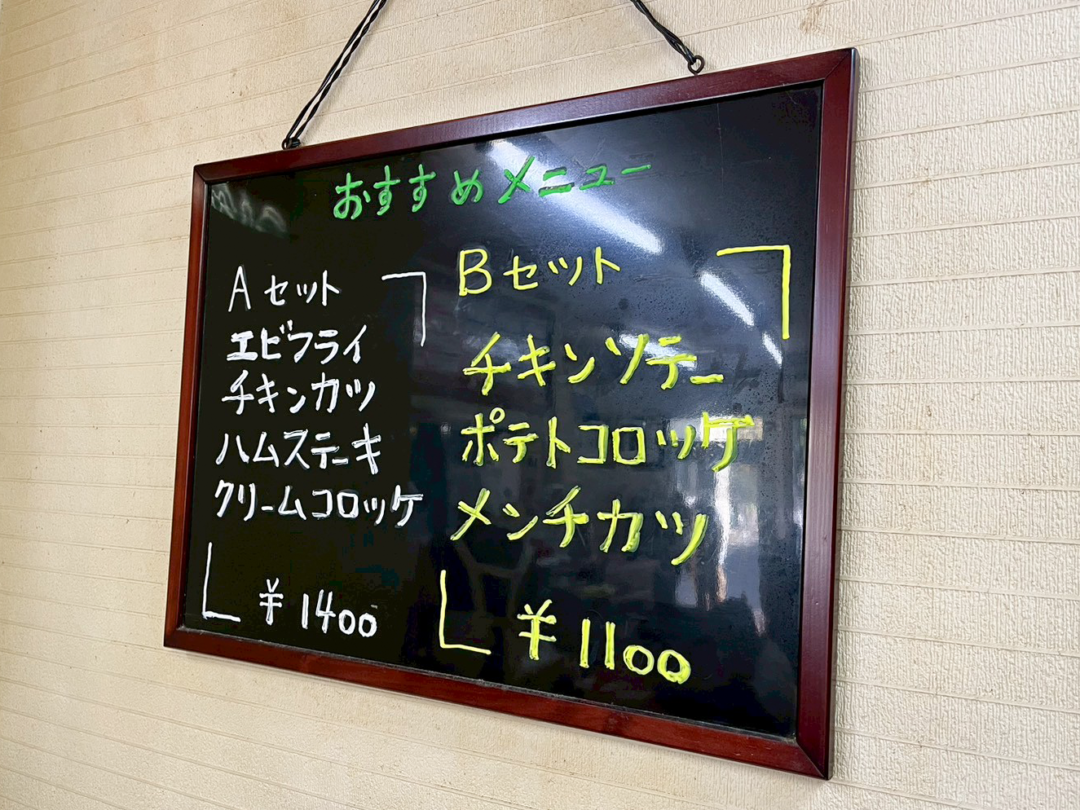 おすすめメニュー
Aセット
エビフライ
チキンカツ
ハムステーキ
クリームコロッケ
¥1400
Bセット
チキンソテー
ポテトコロッケ
メンチカツ
¥1100